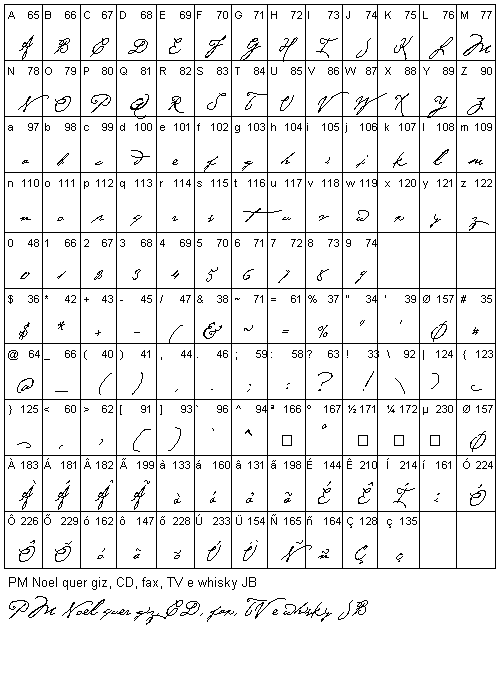 A 65 B 66 C 67 D 68 E 69 F 70 G 71 H 72 I 73 J 74 K 75 L 76 M 77
A B C D E F G H I J K L M
N 78 O 79 P 80 Q 81 R 82 S 83 T 84 U 85 V 86 W 87 X 88 Y 89 Z 90
N O P Q R S T U V W X Y Z
a 97 b 98 c 99 d 100 e 101 f 102 g 103 h 104 i 105 j 106 k 107 l 108 m 109
a b c d e f g h i j k l m
n 110 o 111 p 112 q 113 r 114 s 115 t 116 u 117 v 118 w 119 x 120 y 121 z 122
n o p q r s t u v w x y z
0 48 1 66 2 67 3 68 4 69 5 70 6 71 7 72 8 73 9 74
0 1 2 3 4 5 6 7 8 9
$ 36 * 42 + 43 - 45 / 47 & 38 ~ 71 = 61 % 37 " 34 ' 39 Ø 157 # 35
$ * + - / & ~ = % " ' Ø #
@ 64 _ 66 ( 40 ) 41 , 44 . 46 ; 59 : 58 ? 63 ! 33 \ 92 | 124 { 123
@ _ ( ) , . ; : ? ! \ )
} 125 < 60 > 62 [ 91 ] 93 ` 96 ^ 94 ª 166 º 167 ½ 171 ¼ 172 µ 230 Ø 157
( ) ` ^ º Ø
À 183 Á 181 Â 182 Ã 199 à 133 á 160 â 131 ã 198 É 144 Ê 210 Í 214 í 161 Ó 224
À Á Â Ã à á â ã É Ê Í í Ó
Ô 226 Õ 229 ó 162 ô 147 õ 228 Ú 233 Ü 154 Ñ 165 ñ 164 Ç 128 ç 135
Ô Õ ó ô õ Ú Ü Ñ ñ Ç ç
PM Noel quer giz, CD, fax, TV e whisky JB
PM Noel quer giz, CD, fax, TV e whisky JB